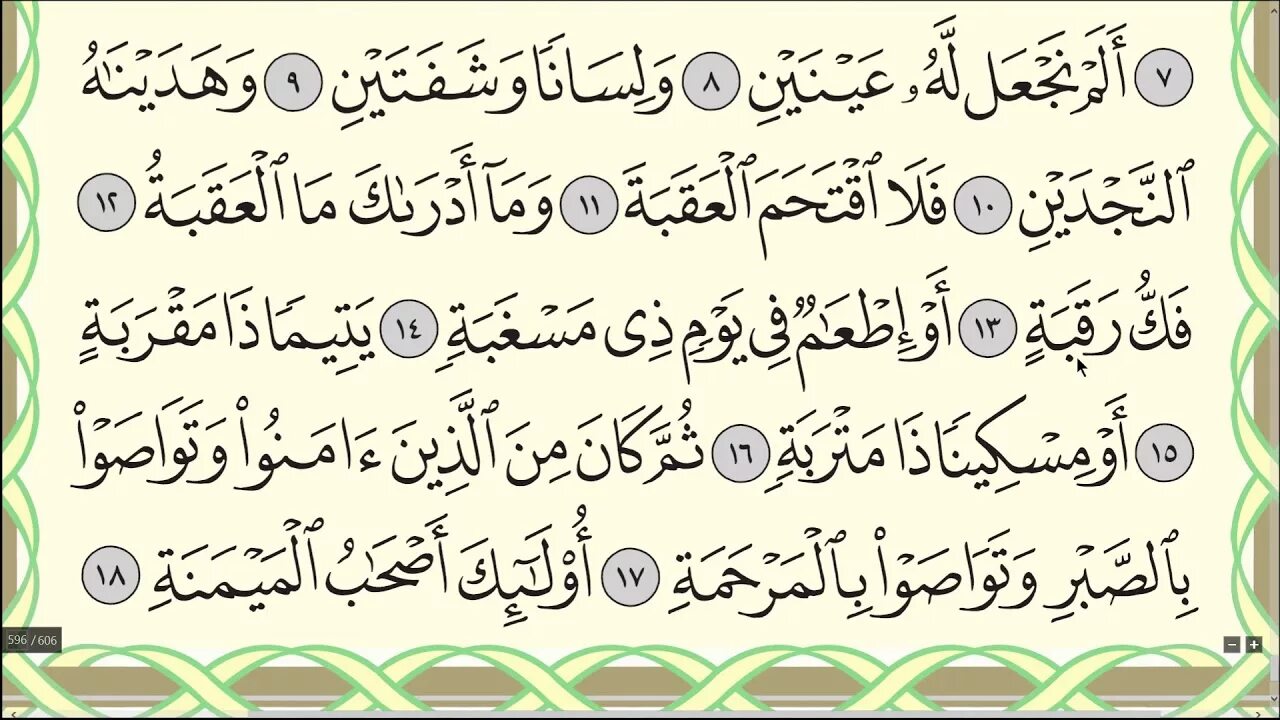 ٧ أَلَمْ نَجْعَل لَّهُۥ عَيْنَيْنِ ٨ وَلِسَانًا وَشَفَتَيْنِ ٩ وَهَدَيْنَٰهُ
ٱلنَّجْدَيْنِ ١٠ فَلَا ٱقْتَحَمَ ٱلْعَقَبَةَ ١١ وَمَآ أَدْرَىٰكَ مَا ٱلْعَقَبَةُ ١٢
فَكُّ رَقَبَةٍ ١٣ أَوْ إِطْعَٰمٌ فِى يَوْمٍ ذِى مَسْغَبَةٍ ١٤ يَتِيمًا ذَا مَقْرَبَةٍ
١٥ أَوْ مِسْكِينًا ذَا مَتْرَبَةٍ ١٦ ثُمَّ كَانَ مِنَ ٱلَّذِينَ ءَامَنُوا۟ وَتَوَاصَوْا۟
بِٱلصَّبْرِ وَتَوَاصَوْا۟ بِٱلْمَرْحَمَةِ ١٧ أُو۟لَٰٓئِكَ أَصْحَٰبُ ٱلْمَيْمَنَةِ ١٨
596 / 606